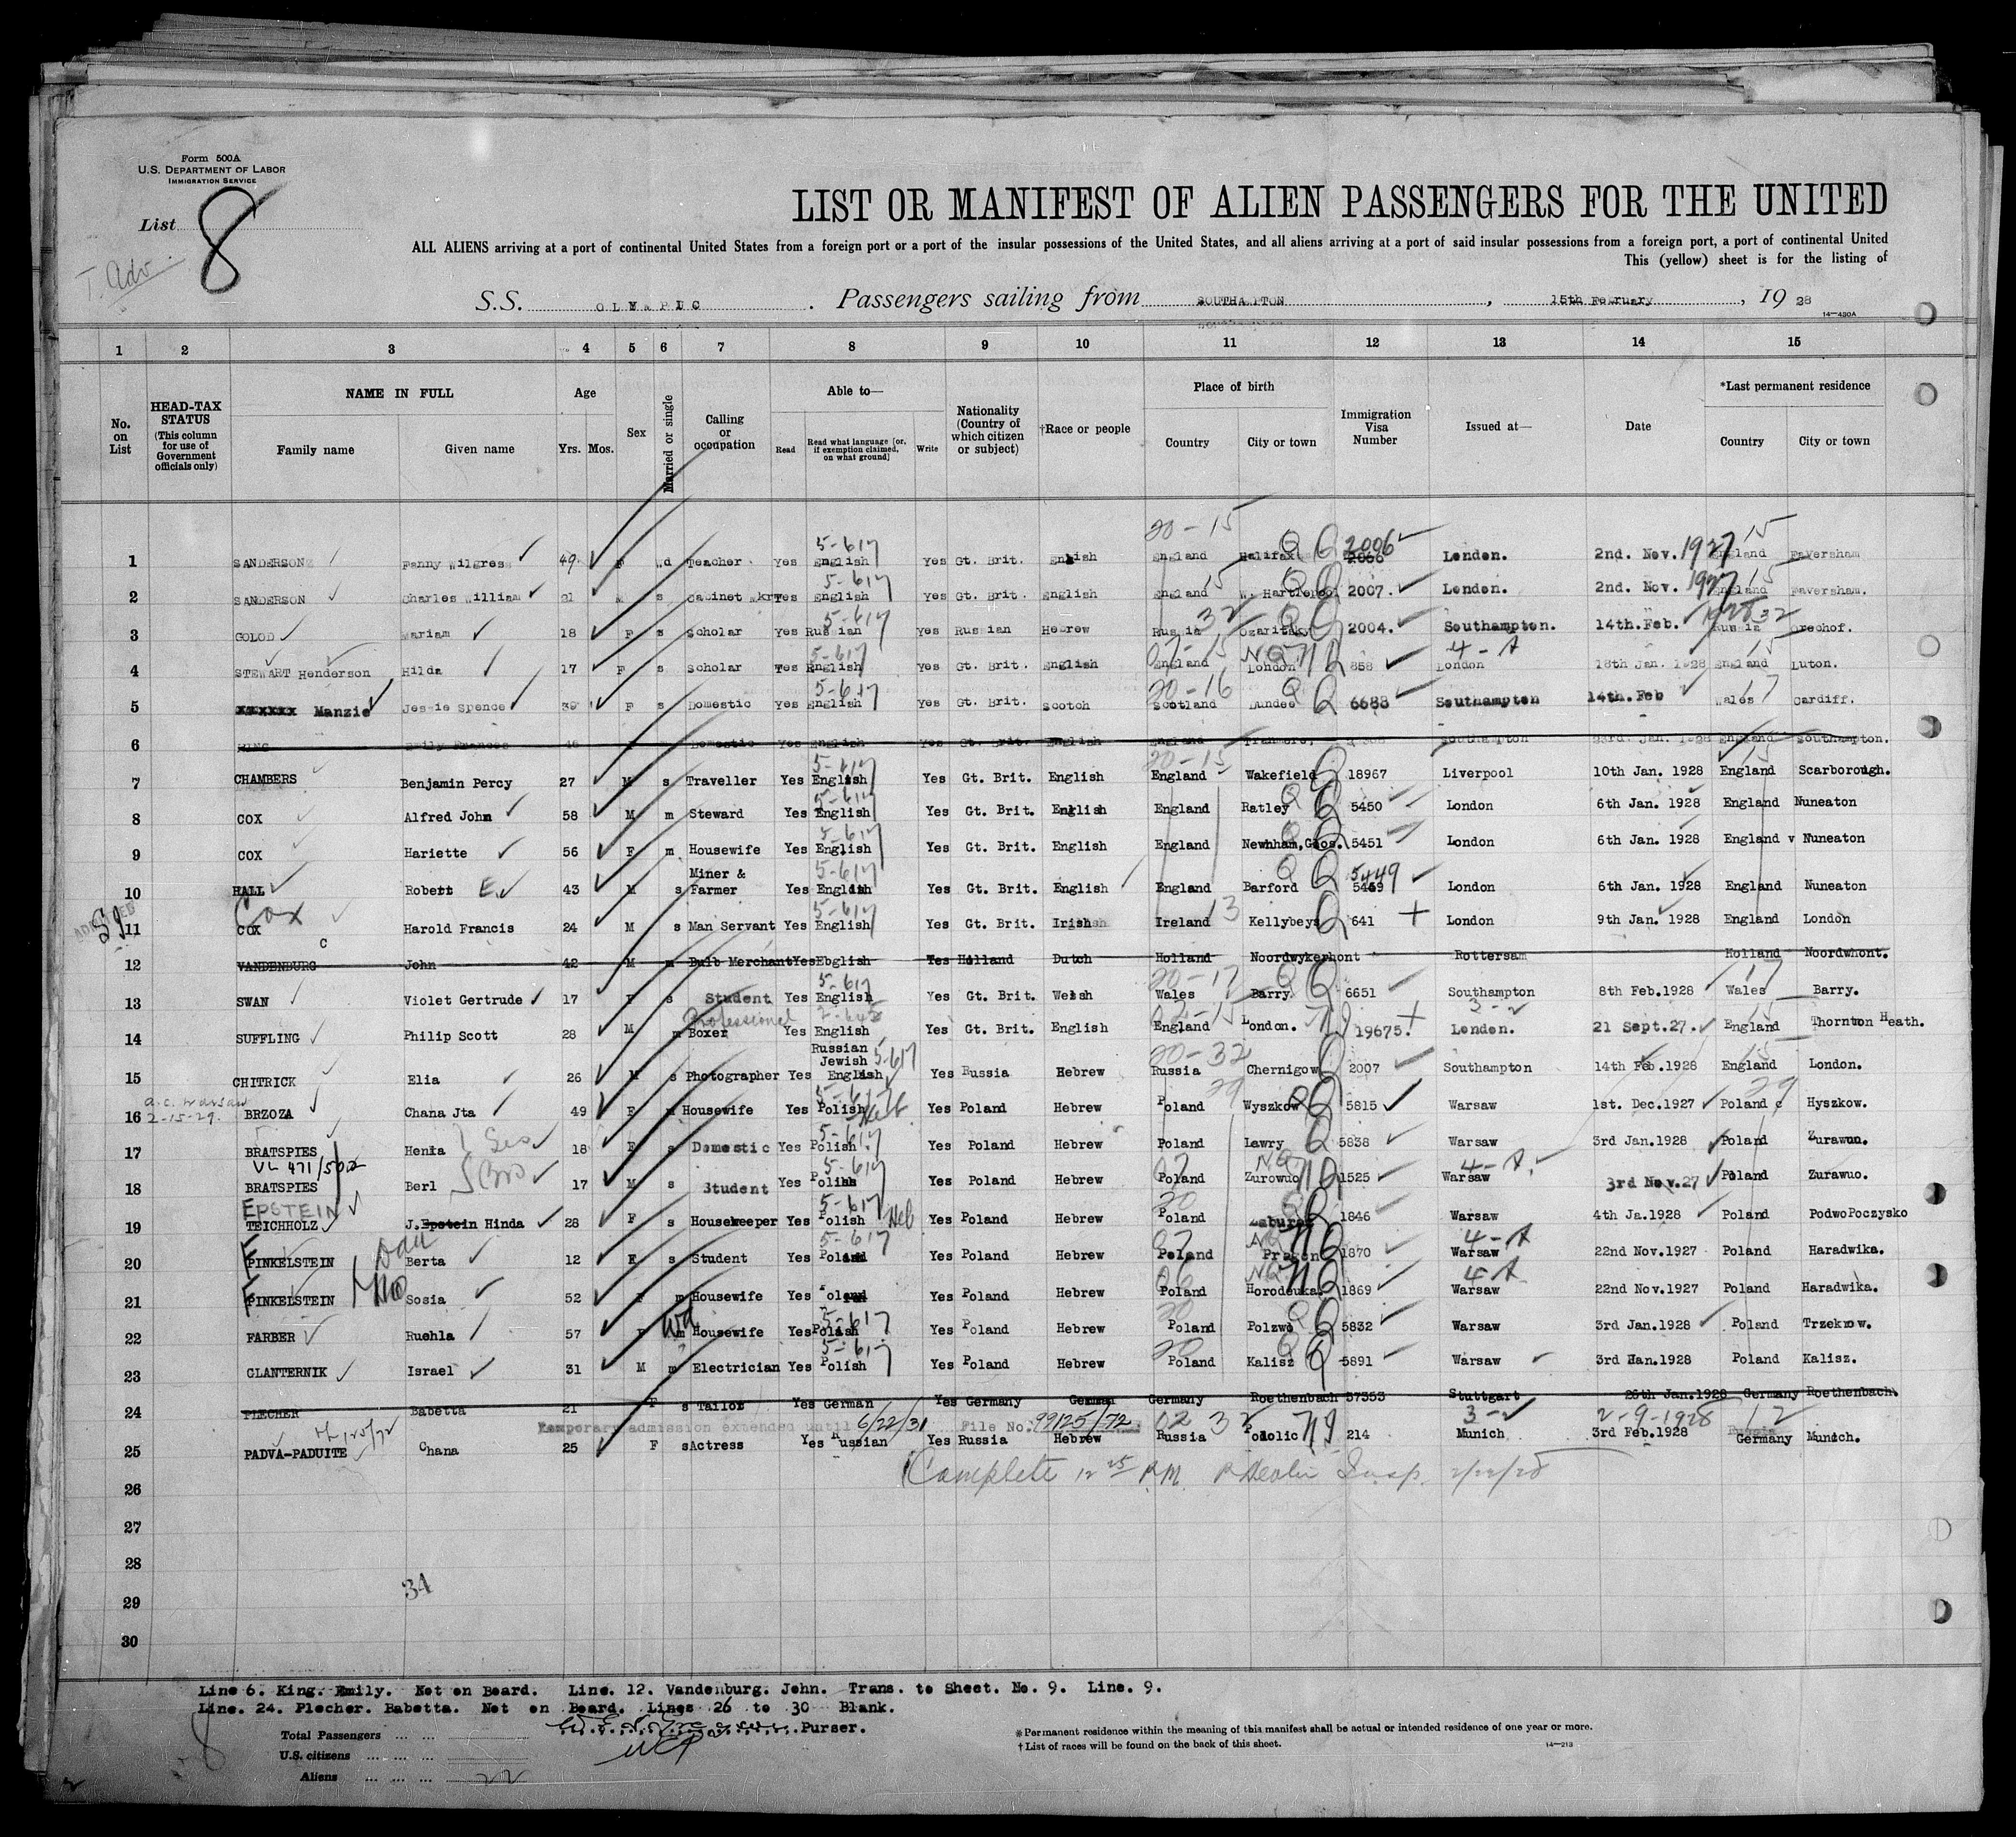 Form 500A
U.S. DEPARTMENT OF LABOR
IMMIGRATION SERVICE
List 8
T. Adv.
LIST OR MANIFEST OF ALIEN PASSENGERS FOR THE UNITED
ALL ALIENS arriving at a port of continental United States from a foreign port or a port of the insular possessions of the United States, and all aliens arriving at a port of said insular possessions from a foreign port, a port of continental United
This (yellow) sheet is for the listing of
S.S. OLYMPIC . Passengers sailing from SOUTHAMPTON , 15th February , 19 28
14—430A
1 2 3 4 5 6 7 8 9 10 11 12 13 14 15
No. on List
HEAD-TAX STATUS (This column for use of Government officials only)
NAME IN FULL
Family name Given name
Age
Yrs. Mos.
Sex
Married or single
Calling or occupation
Able to—
Read Read what language [or, if exemption claimed, on what ground] Write
Nationality (Country of which citizen or subject)
†Race or people
Place of birth
Country City or town
Immigration Visa Number
Issued at—
Date
*Last permanent residence
Country City or town
20-15 5-617 QQ 2006 15
1 SANDERSON Fanny Wilgress 49 F Wd Teacher Yes English Yes Gt. Brit. English England Halifax 2066 London. 2nd. Nov. 1927 England Faversham
5-617 15 QQ 15
2 SANDERSON Charles William 21 M s Cabinet Mkr Yes English Yes Gt. Brit. English England W. Hartlepool 2007. London. 2nd. Nov. 1927 England Faversham.
5-617 32 QQ 1928 32
3 GOLOD Mariam 18 F s Scholar Yes Russian Yes Russian Hebrew Russia 2004. Southampton. 14th.Feb. Russia Orechof.
5-617 07-15 NQ 4-A 15
4 STEWART Henderson Hilda 17 F s Scholar Yes English Yes Gt. Brit. English England London 858 London 18th Jan. 1928 England Luton.
5-617 20-16 QQ 17
5 xxxxxx Manzie Jessie Spence 39 F s Domestic Yes English Yes Gt. Brit. Scotch Scotland Dundee 6688 Southampton 14th.Feb Wales Cardiff.
6 KING Emily Frances 46 F Domestic Yes English Yes Gt. Brit. English England Tranmere, Southampton 23rd. Jan. 1928 England Southampton.
5-617 20-15 Q 15
7 CHAMBERS Benjamin Percy 27 M s Traveller Yes English Yes Gt. Brit. English England Wakefield 18967 Liverpool 10th Jan. 1928 England Scarborough.
5-617 QQ
8 COX Alfred John 58 M m Steward Yes English Yes Gt. Brit. English England Ratley 5450 London 6th Jan. 1928 England Nuneaton
5-617 QQ
9 COX Hariette 56 F m. Housewife Yes English Yes Gt. Brit. English England Newnham,Glos. 5451 London 6th Jan. 1928 England Nuneaton
Miner & 5-617 QQ 5449
10 HALL Robert E. 43 M s Farmer Yes English Yes Gt. Brit. English England Barford 5469 London 6th Jan. 1928 England Nuneaton
ADMITTED SI Cox 5-617 13 Q
11 COX Harold Francis 24 M s Man Servant Yes English Yes Gt. Brit. Irish Ireland Kellybeys 641 London 9th Jan. 1928 England London
C
12 VANDENBURG John 42 M m Bulb Merchant Yes Ebglish Yes Holland Dutch Holland Noordwykerhont Rottersam Holland Noordwhont.
5-617 20-17 QQ 17
13 SWAN Violet Gertrude 17 F s Student Yes English Yes Gt. Brit. Welsh Wales Barry. 6651 Southampton 8th Feb.1928 Wales Barry.
Professional 02-15 3-2
14 SUFFLING Philip Scott 28 M m Boxer Yes English Yes Gt. Brit. English England London. 19675. London. 21 Sept.27. England Thornton Heath.
Russian
Jewish 5-617 20-32 Q 15
15 CHITRICK Elia 26 M s Photographer Yes English Yes Russia Hebrew Russia Chernigow 2007 Southampton 14th Feb.1928 England London.
a.c. Warsaw 5-617 29 QQ 29
16 2-15-29. BRZOZA Chana Jta 49 F m Housewife Yes Polish Yes Poland Hebrew Poland Wyszkow 5815 Warsaw 1st. Dec.1927 Poland c Hyszkow.
5-617 Q
17 BRATSPIES Henia Sis 18 F s Domestic Yes Polish Yes Poland Hebrew Poland Lawry 5838 Warsaw 3rd Jan.1928 Poland Zurawno.
VL 471/502 5-617 07 NQ 4-A.
18 BRATSPIES Berl Bro 17 M s Student Yes Polish Yes Poland Hebrew Poland Zurowuo 1525 Warsaw 3rd Nov.27 Poland Zurawuo.
EPSTEIN 5-617 Heb 20 QQ
19 TEICHHOLZ J.Epstein Hinda 28 F s Housekeeper Yes Polish Yes Poland Hebrew Poland 1846 Warsaw 4th Ja.1928 Poland PodwoPoczysko
F Dau 5-617 07 NQ 4-A
20 PINKELSTEIN Berta 12 F s Student Yes Poland Yes Poland Hebrew Poland 1870 Warsaw 22nd Nov.1927 Poland Haradwika.
F Mo 06 NQ 4-A
21 PINKELSTEIN Sosia 52 F m Housewife Yes Yes Poland Hebrew Poland Horodeuka 1869 Warsaw 22nd Nov.1927 Poland Haradwika.
Wd 5-617 20 QQ
22 FARBER Ruehla 57 F m Housewife Yes Polish Yes Poland Hebrew Poland Polzwo 5832 Warsaw 3rd Jan.1928 Poland Trzekrow.
5-617 20 QQ
23 GLANTERNIK Israel 31 M m Electrician Yes Polish Yes Poland Hebrew Poland Kalisz 5891 Warsaw 3rd Han.1928 Poland Kalisz.
24 PLECHER Babetta 21 F s Tailor Yes German Yes Germany German Germany Roethenbach 57353 Stuttgart 26th Jan.1928 Germany Roethenbach.
Temporary admission extended until 6/22/31 File No. 99125/72 02 32 3-2 2-9-1928 12
25 PADVA-PADUITE Chana 25 F s Actress Yes Russian Yes Russia Hebrew Russia Podolic 214 Munich 3rd Feb.1928 Germany Munich.
Complete 12 25 P.M. Insp. 2/22/28
26
27
28
34
29
30
Line 6. King. Emily. Not on Board. Line. 12. Vandenburg. John. Trans. to Sheet. No. 9. Line. 9.
Line. 24. Plecher. Babetta. Not on Board. Lines 26 to 30 Blank.
Purser.
Total Passengers
U.S. citizens
Aliens 22
*Permanent residence within the meaning of this manifest shall be actual or intended residence of one year or more.
†List of races will be found on the back of this sheet.
14—213